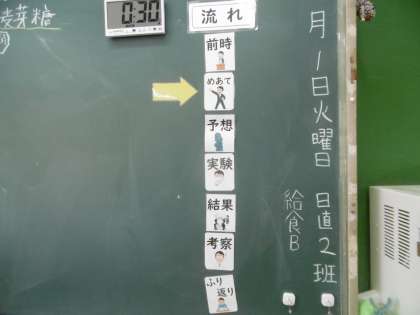 麦芽糖
0:30
流れ
前時
めあて
予想
実験
結果
考察
ふり
返り
月1日火曜日
日直2班
給食B